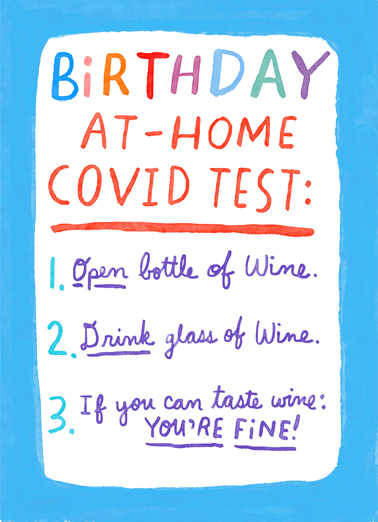 BiRTHDAY
AT-HOME
COVID TEST:
1. Open bottle of Wine.
2. Drink glass of Wine.
3. If you can taste wine:
YOU'RE FiNE!